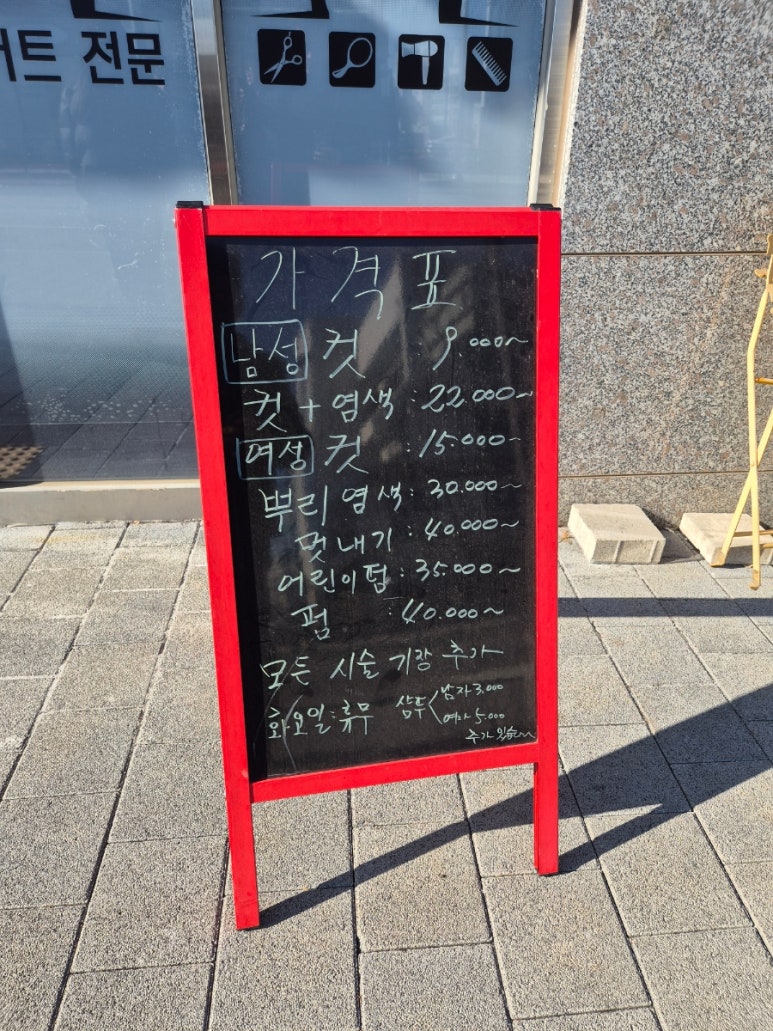 커트 전문
가격표
남성 컷 : 9.000~
컷 + 염색 : 22.000~
여성 컷 : 15.000~
뿌리 염색 : 30.000~
멋내기 : 40.000~
어린이펌 : 35.000~
펌 : 40.000~
모든 시술 기장 추가
화요일:휴무 샴푸 < 남자 3.000
여자 5.000
추가 있습니다